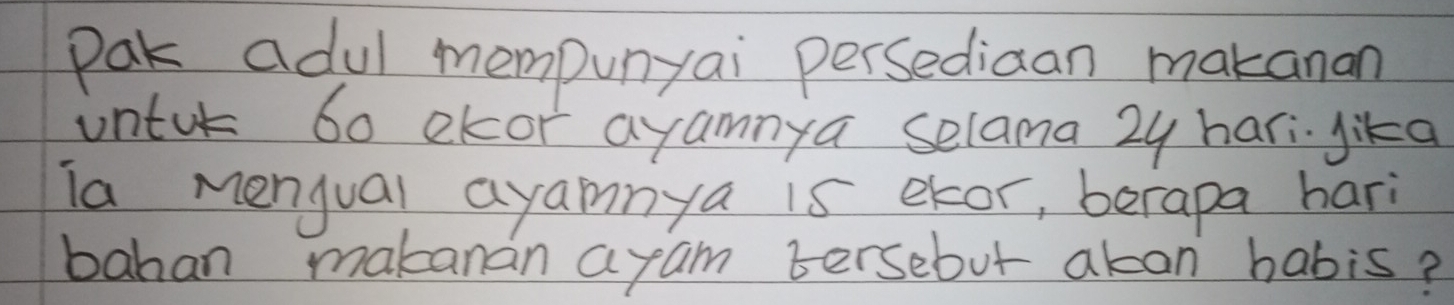 Pak adul mempunyai persediaan makanan
untuk 60 ekor ayamnya selama 24 hari. Jika
ia Menjual ayamnya 15 ekor, berapa hari
bahan makanan ayam tersebut akan habis?